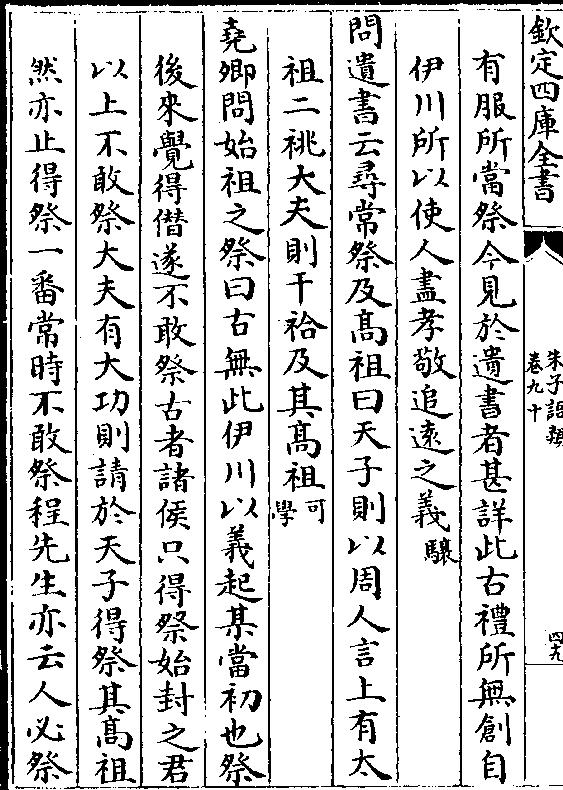 欽定四庫全書
朱子語類
卷九十
四九
有服所當祭今見於遺書者甚詳此古禮所無創自
伊川所以使人盡孝敬追逺之義驤
問遺書云尋常祭及髙祖曰天子則以周人言上有太
祖二祧大夫則干祫及其髙祖可學
堯卿問始祖之祭曰古無此伊川以義起某當初也祭
後來覺得僣遂不敢祭古者諸侯只得祭始封之君
以上不敢祭大夫有大功則請於天子得祭其髙祖
然亦止得祭一番常時不敢祭程先生亦云人必祭